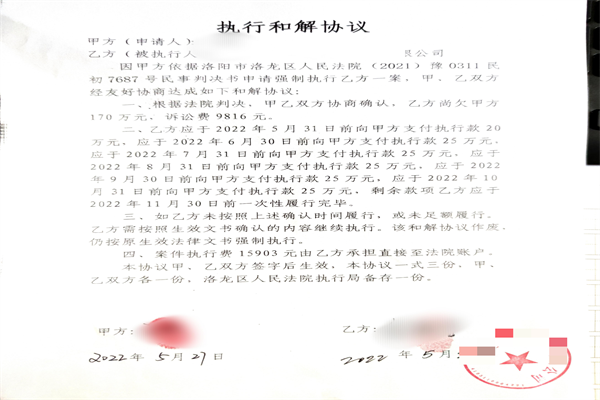 执行和解协议
甲方（申请人）：
乙方（被执行人
公司
因甲方依据洛阳市洛龙区人民法院（2021）豫0311民
初7687号民事判决书申请强制执行乙方一案，甲、乙双方
经友好协商达成如下和解协议：
一、根据法院判决，甲乙双方协商确认，乙方尚欠甲方
170万元，诉讼费9816元。
二、乙方应于2022年5月31日前向甲方支付执行款20
万元，应于2022年6月30日前向甲方支付执行款25万元，
应于2022年7月31日前向甲方支付执行款25万元，应于
2022年8月31日前向甲方支付执行款25万元，应于2022
年9月30日前向甲方支付执行款25万元，应于2022年10
月31日前向甲方支付执行款25万元，剩余款项乙方应于
2022年11月30日前一次性履行完毕。
三、如乙方未按照上述确认时间履行，或未足额履行。
乙方需按照生效文书确认的内容继续执行。该和解协议作废，
仍按原生效法律文书强制执行。
四、案件执行费15903元由乙方承担直接至法院账户。
本协议甲、乙双方签字后生效，本协议一式三份，甲、
乙双方各一份，洛龙区人民法院执行局备存一份。
甲方：
乙方：
2022年5月27日
2022年5月